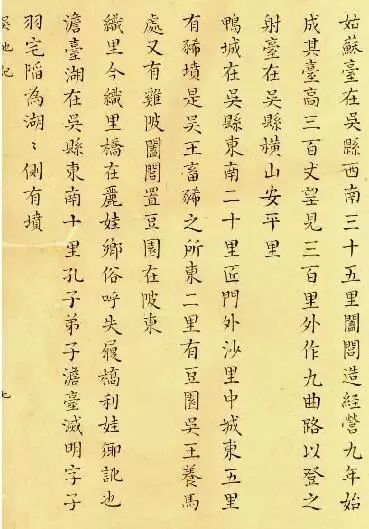 姑蘇臺在吳縣西南三十五里闔閭造經營九年始
成其臺高三百丈望見三百里外作九曲路以登之
射臺在吳縣橫山安平里
鴨城在吳縣東南二十里匠門外沙里中城東五里
有豨墳是吳王畜豨之所東二里有豆園吳王養馬
處又有雞陂闔閭置豆園在陂東
織里今織里橋在麗娃鄉俗呼失履橋利娃鄉訛也
澹臺湖在吳縣東南十里孔子弟子澹臺滅明字子
羽宅陷為湖〻側有墳
吳地記
七